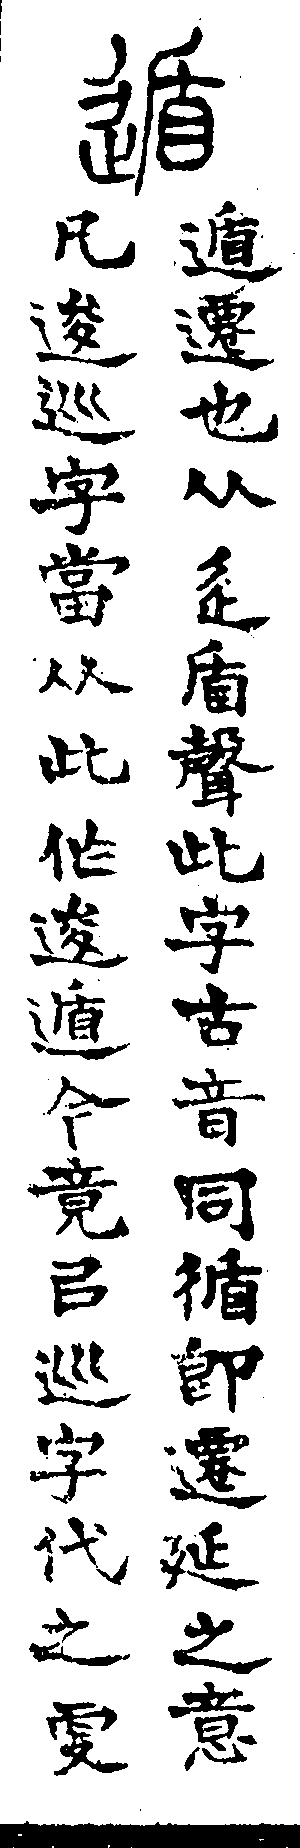 遁
遁遷也从辵盾聲此字古音同循即遷延之意
凡逡巡字當从此作逡遁今竟㠯巡字代之